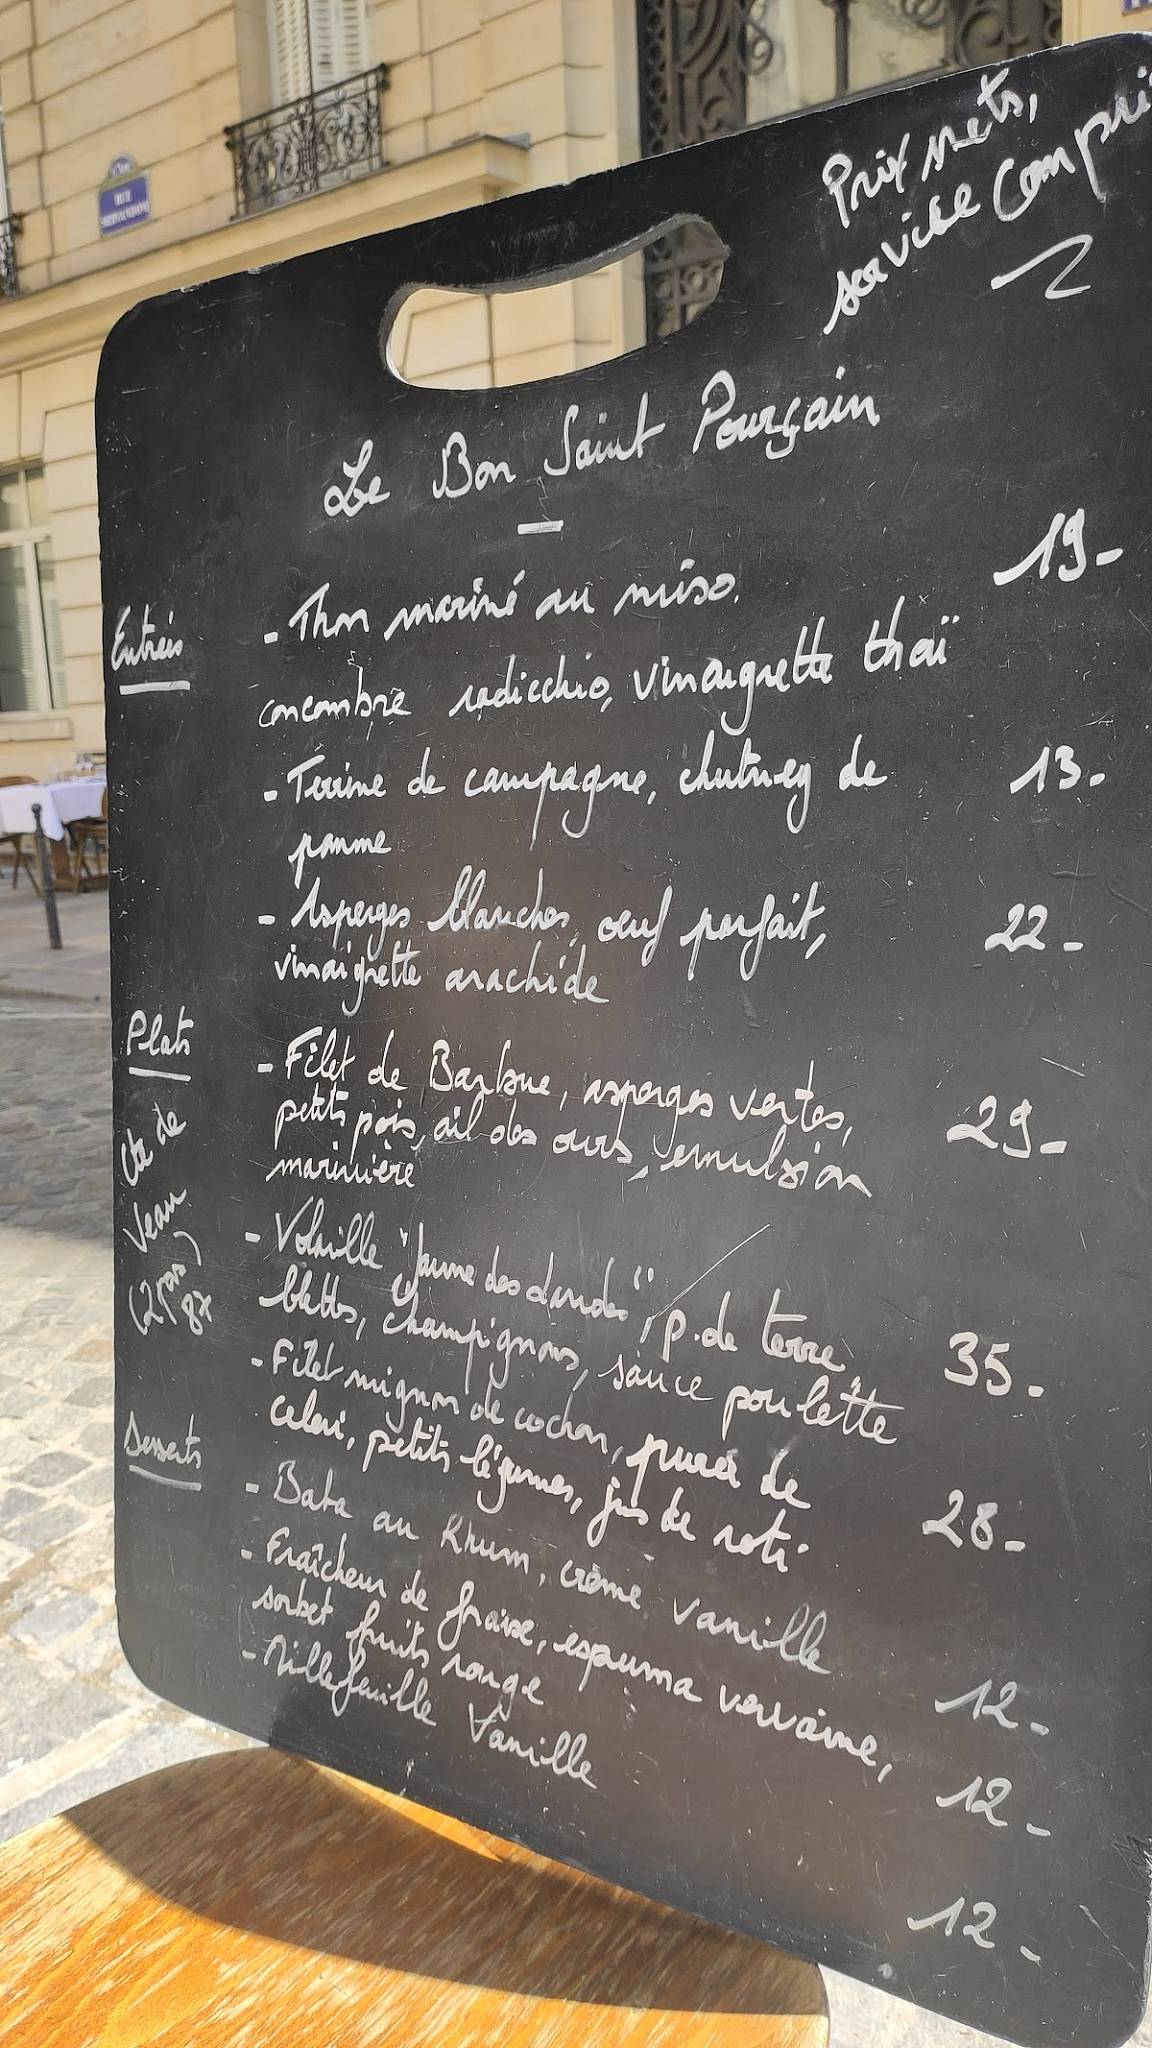 RUE
SERVANDONI
Prix nets,
service compri
Le Bon Saint Pourçain
Entrées
- Thon mariné au miso. 19-
concombre radicchio, vinaigrette thaï
- Terrine de campagne, chutney de 13-
pomme
- Asperges blanches, oeuf parfait, 22-
vinaigrette arachide
Plats
- Filet de Barbue, asperges vertes, 29-
petits pois, ail des ours, emulsion
marinière
Cte de
Veau
(2 pers)
87
- Volaille "jaune des landes", p.de terre 35-
blettes, champignons, sauce poulette
- Filet mignon de cochon, purée de 28-
celeri, petits légumes, jus de roti
Desserts
- Baba au Rhum, crème vanille 12-
- Fraîcheur de fraise, espuma verveine, 12-
sorbet fruits rouge
- Millefeuille Vanille 12-